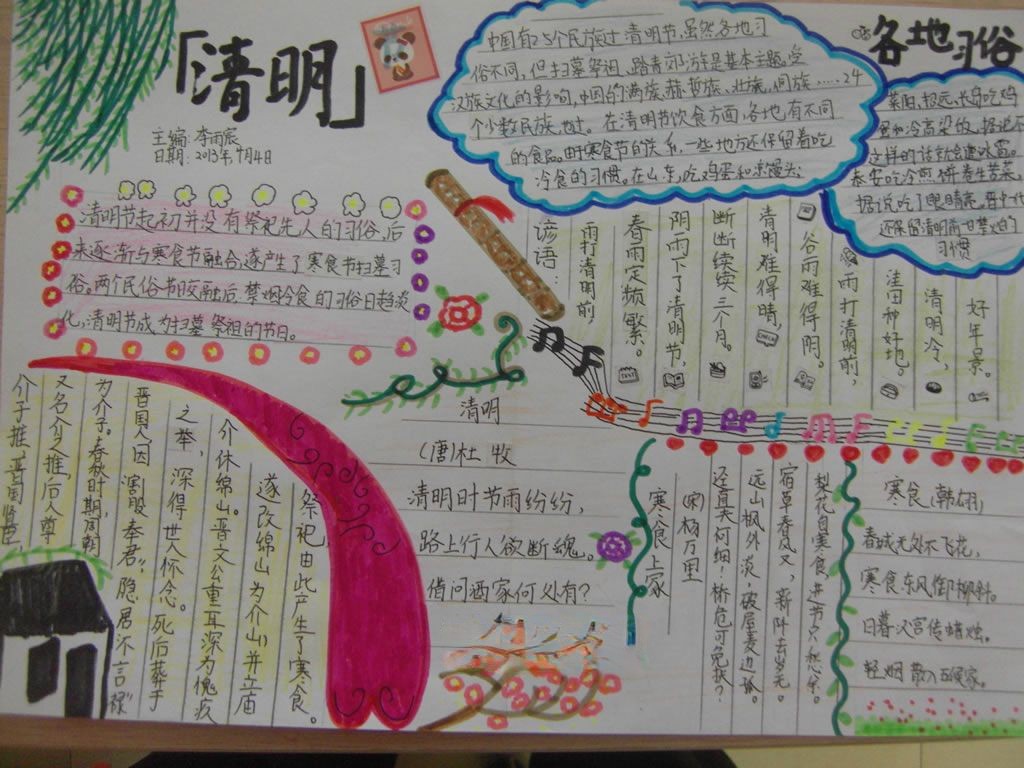 「清明」
主编:李雨宸
日期:2013年4月4日
清明节起初并没有祭祀先人的习俗,后
来逐渐与寒食节融合,遂产生了寒食节扫墓习
俗。两个民俗节日交融后,禁烟冷食的习俗日趋淡
化,清明节成为扫墓祭祖的节日。
中国有25个民族过清明节,虽然各地习
俗不同,但扫墓祭祖、踏青郊游是基本主题,受
汉族文化的影响,中国的满族、赫哲族、壮族、侗族……24
个少数民族,也过。在清明节饮食方面,各地有不同
的食品。由于寒食节的关系,一些地方还保留着吃
冷食的习惯。在山东,吃鸡蛋和凉馒头;
各地习俗
莱阳、招远、长岛吃鸡
蛋和冷高粱的,据说不
这样的话就会遭冰雹。
泰安吃冷煎饼卷生苦菜,
据说吃了眼睛亮。晋中
还保留清明前日禁火的
习惯
谚语:
雨打清明前,
春雨定频繁。
阴雨下了清明节,
断断续续三个月。
清明难得晴,
谷雨难得阴。
雨打清明前,
洼田种好地。
清明冷,
好年景。
介子推,晋国贤臣,
又名介之推,后人尊
为介子。春秋时期周朝
晋国人,因“割股奉君”,隐居“不言禄”
之举,深得世人怀念。死后葬于
介休绵山。晋文公重耳深为愧疚
遂改绵山为介山,并立庙
祭祀,由此产生了寒食。
清明
(唐)杜牧
清明时节雨纷纷,
路上行人欲断魂。
借问酒家何处有?
寒食上冢
(宋)杨万里
迳直夫何细!桥危可免扶?
远山枫外淡,破屋麦边孤。
宿草春风又,新阡去岁无。
梨花自寒食,进节只愁余。
寒食(韩翃)
春城无处不飞花,
寒食东风御柳斜。
日暮汉宫传蜡烛,
轻烟散入五侯家。